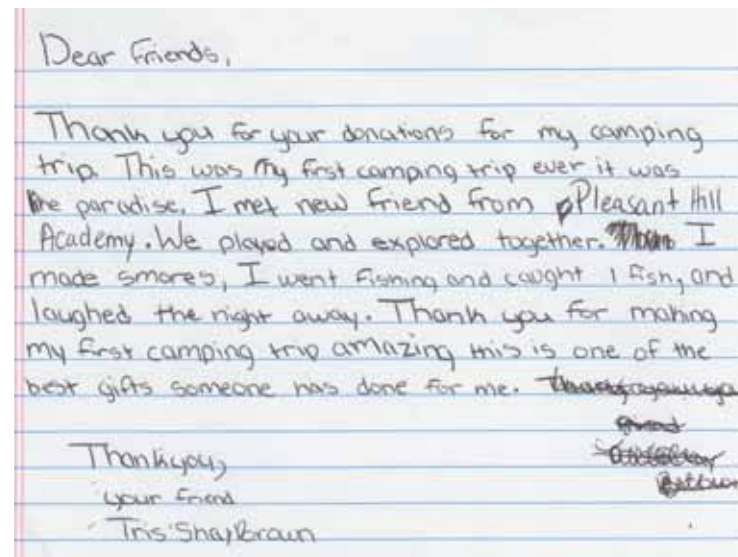 Dear Friends,
Thank you for your donations for my camping
trip. This was My first camping trip ever it was
like paradise. I met new friend from Pleasant Hill
Academy. We played and explored together. I
made smores, I went fishing and caught 1 fish, and
laughed the night away. Thank you for making
my first camping trip amazing this is one of the
best gifts someone has done for me.
Thankyou,
your friend
Tris'Shay Braun